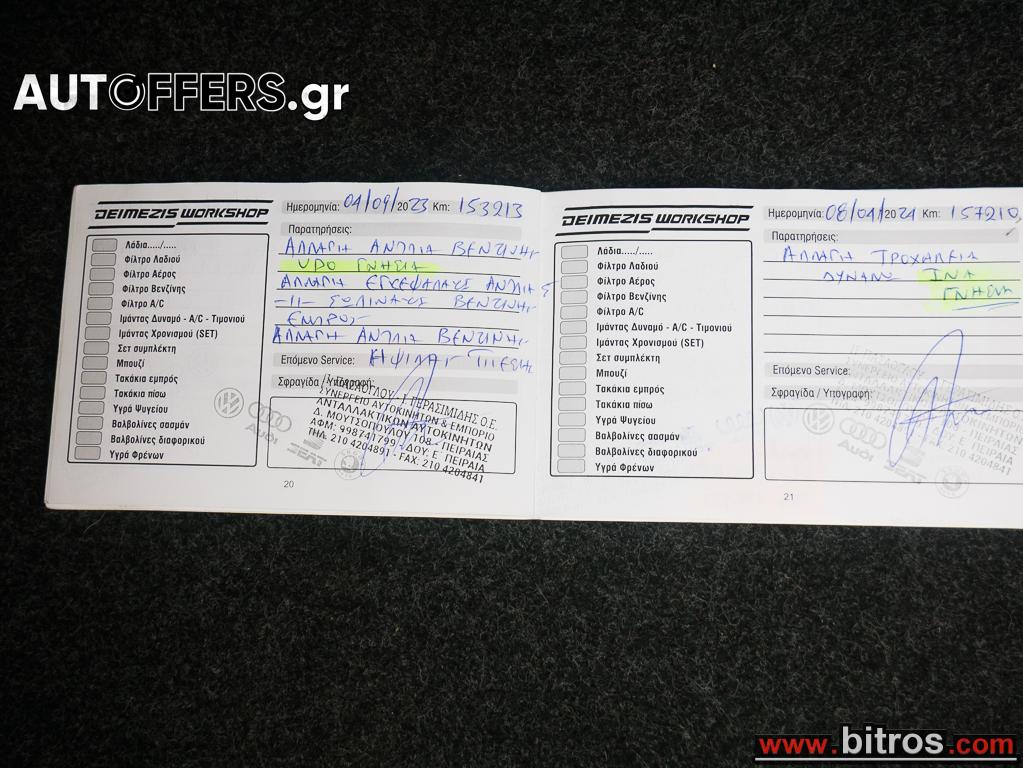 AUTOFFERS.gr
DEIMEZIS WORKSHOP
Ημερομηνία: 04/09/2023 Km: 153213
Παρατηρήσεις:
ΑΛΛΑΓΗ ΑΝΤΛΙΑ ΒΕΝΖΙΝΗΣ
VDO ΓΝΗΣΙΑ
ΑΛΛΑΓΗ ΕΓΚΕΦΑΛΟΥΣ ΑΝΤΛΙΑΣ
-11- ΣΩΛΙΝΑΚΙ ΒΕΝΖΙΝΗΣ
ΕΜΠΡΟΣ
ΑΛΛΑΓΗ ΑΝΤΛΙΑ ΒΕΝΖΙΝΗΣ
Επόμενο Service: ΗΨΙΛΗΣ ΠΙΕΣΗΣ
Σφραγίδα / Υπογραφή:
Λάδια...../.....
Φίλτρο Λαδιού
Φίλτρο Αέρος
Φίλτρο Βενζίνης
Φίλτρο A/C
Ιμάντας Δυναμό - A/C - Τιμονιού
Ιμάντας Χρονισμού (SET)
Σετ συμπλέκτη
Μπουζί
Τακάκια εμπρός
Τακάκια πίσω
Υγρά Ψυγείου
Βαλβολίνες σασμάν
Βαλβολίνες διαφορικού
Υγρά Φρένων
Γ. ΓΕΡΑΣΙΜΙΔΗΣ Ο.Ε.
ΣΥΝΕΡΓΕΙΟ ΑΥΤΟΚΙΝΗΤΩΝ & ΕΜΠΟΡΙΟ
ΑΝΤΑΛΛΑΚΤΙΚΩΝ ΑΥΤΟΚΙΝΗΤΩΝ
Δ. ΜΟΥΤΣΟΠΟΥΛΟΥ 108 - ΠΕΙΡΑΙΑΣ
ΑΦΜ: 998741799 - ΔΟΥ: Ε ΠΕΙΡΑΙΑ
ΤΗΛ. 210 4204891 - FAX: 210 4204841
AUDI
SEAT
20
DEIMEZIS WORKSHOP
Ημερομηνία: 08/01/2021 Km: 157210
Παρατηρήσεις:
ΑΛΛΑΓΗ ΤΡΟΧΑΛΕΙΑ
ΔΥΝΑΜΟ ΙΝΑ
ΓΝΗΣΙΑ
Επόμενο Service:
Σφραγίδα / Υπογραφή:
Λάδια...../.....
Φίλτρο Λαδιού
Φίλτρο Αέρος
Φίλτρο Βενζίνης
Φίλτρο A/C
Ιμάντας Δυναμό - A/C - Τιμονιού
Ιμάντας Χρονισμού (SET)
Σετ συμπλέκτη
Μπουζί
Τακάκια εμπρός
Τακάκια πίσω
Υγρά Ψυγείου
Βαλβολίνες σασμάν
Βαλβολίνες διαφορικού
Υγρά Φρένων
AUDI
SEAT
21
www.bitros.com